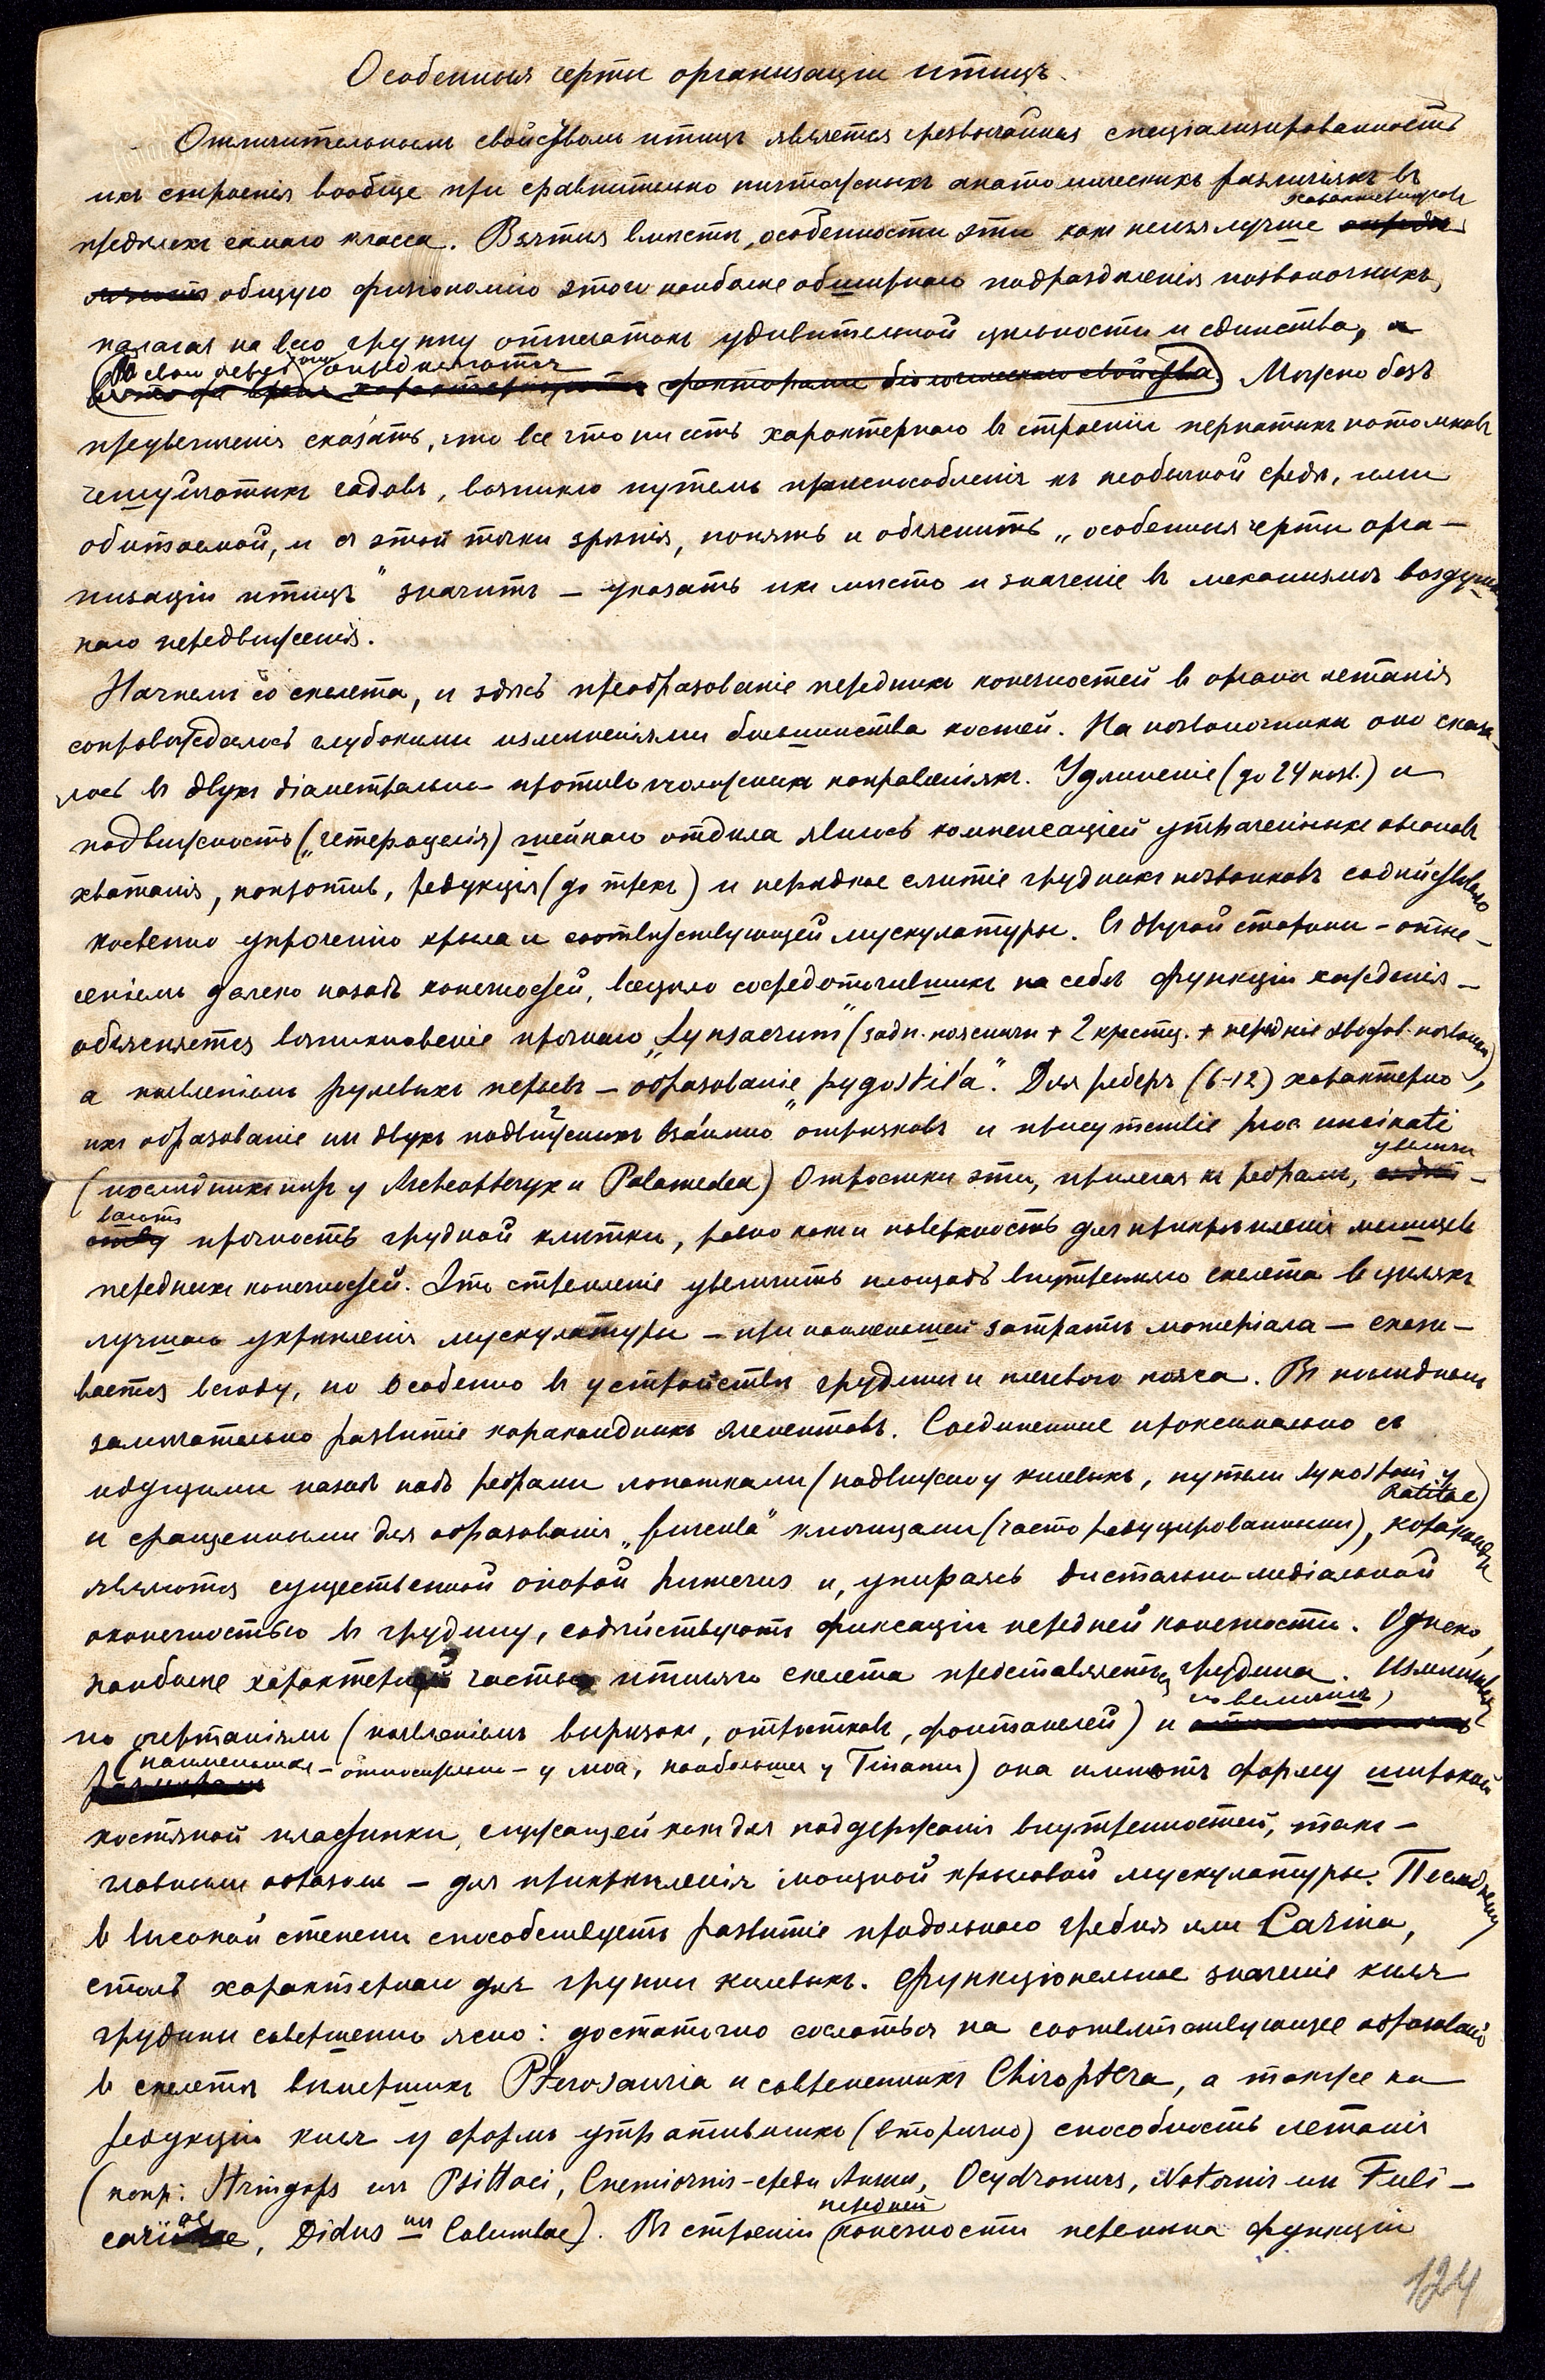 Особенныя черты организаціи птицъ.
Отличительнымъ свойствомъ птицъ является чрезвычайная спеціализированность
ихъ строенія вообще при сравнительно ничтожныхъ анатомическихъ различіяхъ въ
предѣлахъ самаго класса. Взятыя вмѣстѣ, особенности эти какъ нельзя лучше характеризуютъ
общую физіономію этого наиболѣе обширнаго подраздѣленія позвоночныхъ,
налагая на всю группу отпечатокъ удивительной цѣльности и единства, а
въ свою очередь они опредѣляются факторами біологическаго свойства. Можно безъ
преувеличенія сказать, что все что ни есть характернаго въ строеніи пернатыхъ потомковъ
чешуйчатыхъ гадовъ, возникло путемъ приспособленія къ необычной средѣ, ими
обитаемой, и съ этой точки зрѣнія, понять и объяснить „особенныя черты орга-
низаціи птицъ" значитъ - указать ихъ мѣсто и значеніе въ механизмѣ воздуш-
наго передвиженія.
Начнемъ со скелета, и здѣсь преобразованіе переднихъ конечностей въ органы летанія
сопровождалось глубокими измѣненіями большинства костей. На позвоночникѣ оно сказа-
лось въ двухъ діаметрально противоположныхъ направленіяхъ. Удлиненіе (до 24 позв.) и
подвижность („гетероцелія) шейнаго отдѣла явилось компенсаціей утраченныхъ органовъ
хватанія, напротивъ, редукція (до трехъ) и нерѣдкое слитіе грудныхъ позвонковъ содѣйствовало
косвенно упроченію крыла и соотвѣтствующей мускулатуры. Съ другой стороны - отне-
сеніемъ далеко назадъ конечностей, всецѣло сосредоточившихъ на себѣ функціи хожденія -
объясняется возникновеніе прочнаго „Synsacrum" (задн. поясничн + 2 крестц. + передніе хвостов. позвонки),
а появленіемъ рулевыхъ перьевъ - образованіе „pygostil'a". Для реберъ (6-12) характерно
ихъ образованіе изъ двухъ подвижныхъ взаимно отрѣзковъ и присутствіе proc. uncinati
(послѣднихъ нѣтъ у Archeopteryx и Palamedea) Отростки эти, прилегая къ ребрамъ, увеличи-
ваютъ прочность грудной клѣтки, равно какъ и поверхность для прикрѣпленія мышцъ
переднихъ конечностей. Это стремленіе увеличить площадь внутренняго скелета въ цѣляхъ
лучшаго укрѣпленія мускулатуры - при наименьшей затратѣ матеріала - сказы-
вается всюду, но особенно въ устройствѣ грудины и плечевого пояса. Въ послѣднемъ
замѣчательно развитіе каракоидныхъ элементовъ. Соединенные проксимально съ
идущими назадъ надъ ребрами лопатками (подвижно у килевыхъ, путемъ synostosis у Ratitae)
и сращенными для образованія „furcula" ключицами (часто редуцированными), каракоиды
являются существенной опорой humerus и, упираясь дистально медіальной
оконечностью въ грудину, содѣйствуютъ фиксаціи передней конечности. Однако,
наиболѣе характерной частью птичьяго скелета представляется грудина. Измѣнчивая
по очертаніямъ (появленіемъ вырѣзокъ, отростковъ, фонтанелей) и по величинѣ,
(наименьшая - относительно - у моа, наибольшая у Tinamu) она имѣетъ форму широкой
костяной пластинки, служащей какъ для поддержанія внутренностей, такъ -
главнымъ образомъ - для прикрѣпленія мощной крыловой мускулатуры. Послѣднему
въ высокой степени способствуетъ развитіе продольнаго гребня или Carina,
столь характернаго для группы килевыхъ. Функціональное значеніе киля
грудины совершенно ясно: достаточно сослаться на соотвѣтствующее образованіе
въ скелетѣ вымершихъ Pterosauria и современныхъ Chiroptera, а также на
редукцію киля у формъ утратившихъ (вторично) способность летанія
(напр: Stringops изъ Psittaci, Cnemiornis - среди Anseres, Ocydromus, Notornis изъ Fuli-
cariae, Didus изъ Columbae). Въ строеніи передней конечности перемѣна функціи
124